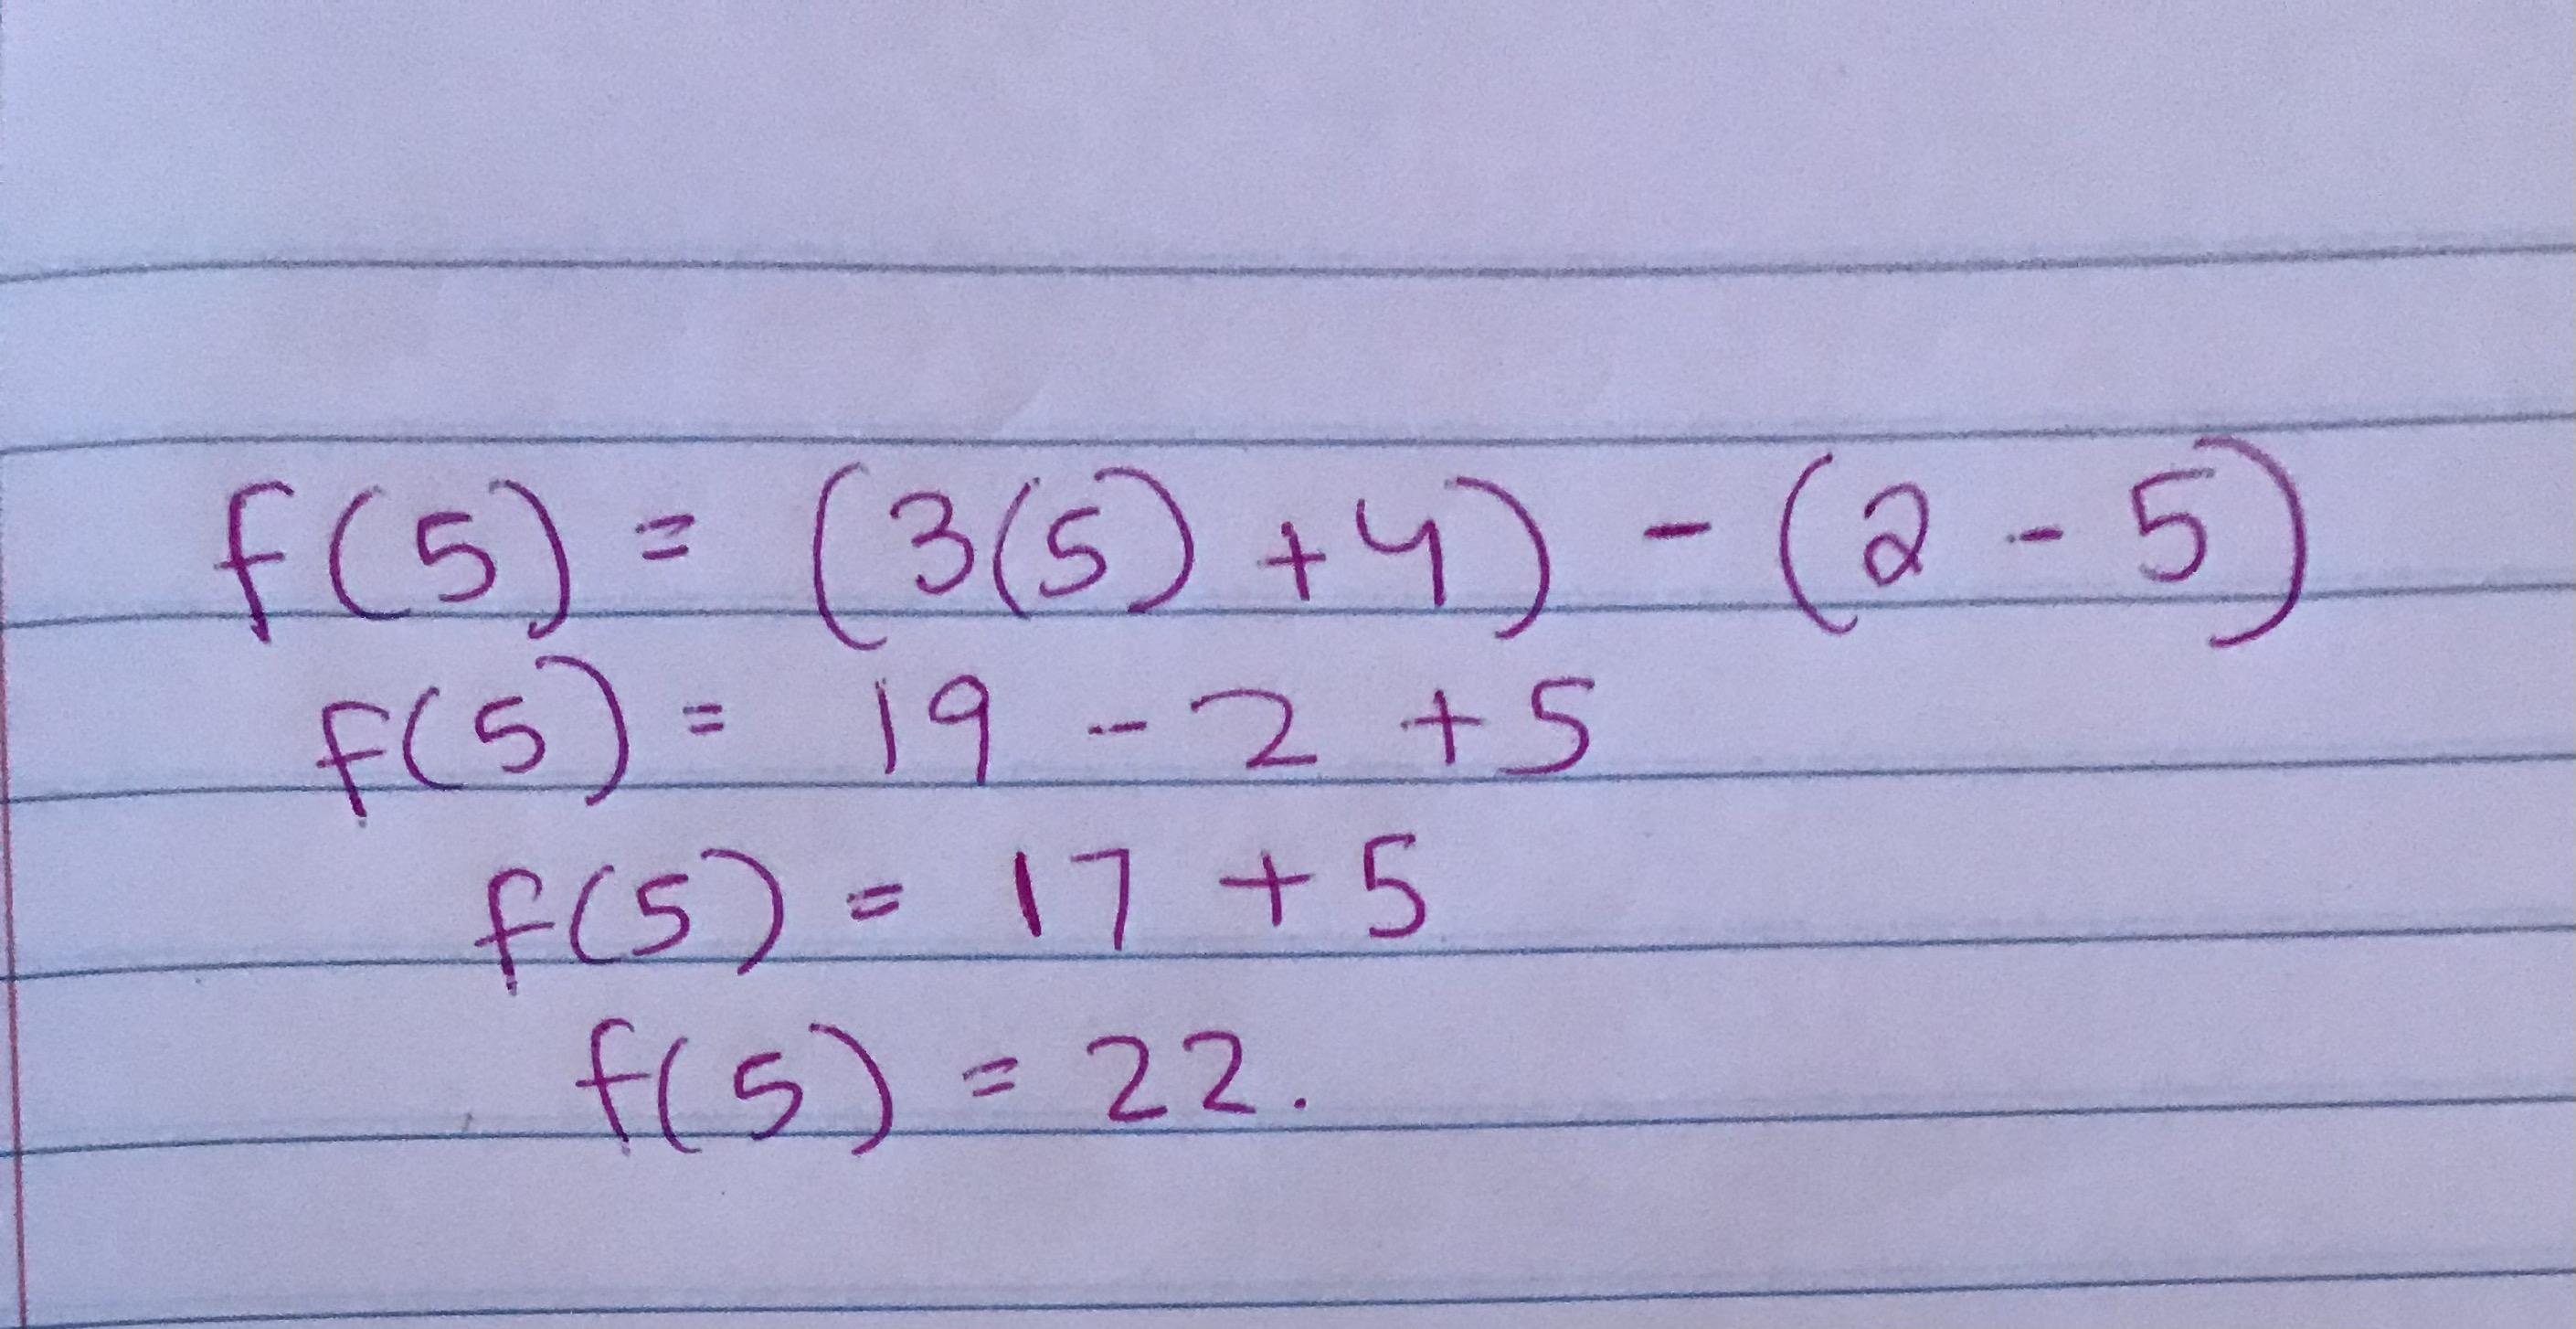 f(5) = (3(5) + 4) - (2 - 5)
f(5) = 19 - 2 + 5
f(5) = 17 + 5
f(5) = 22.